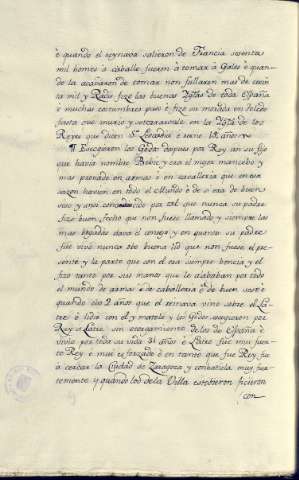 è quando el rey nava salieron de Francia sesenta
mil homes à caballo fueron à tomar à Goles è quan-
do la acabaron de tomar non fallaron mas de
ta mil y Racio fizo las buenas Villas de toda España
è muchas costumbres puso è fizo su morada en Toledo
fasta que murio y enterraronle en la Villa de los
Reyes que dicen Sta. Leocadia è reino 18. años
¶ Escogieron los Godos despues por Rey un su fijo
que havia nombre è era el mejor mancebo y
mas preciado en armas è en cavalleria que en esa
sazon havian en todo el Mundo è de si era de buen
seso y ansi por tal que nunca su padre
fizo buen fecho que non fuese llamado y siempre las
mas vegadas dava el consejo y en quanto su padre
fue vivo nunca oto buena lid que non fuese el pre-
sente y la parte que con el era siempre vencia y el
fizo tanto por sus manos que le alababan por todo
el mundo de armas è de caballeria è de buen seso è
quando oto 2 años que el reinava vino sobre el La-
tre è lidio con el y matole y los Godos por
Rey à Latre sin otorgamiento de los de España è
vivio por toda su vida 31 años è Latre fue mui fuer-
te Rey è mui esforzado è en tanto que fue Rey, fue
à cercar la Ciudad de Zaragoza y combatiola muy fuer-
temente y quando los de la Villa esto vieron ficieron
con